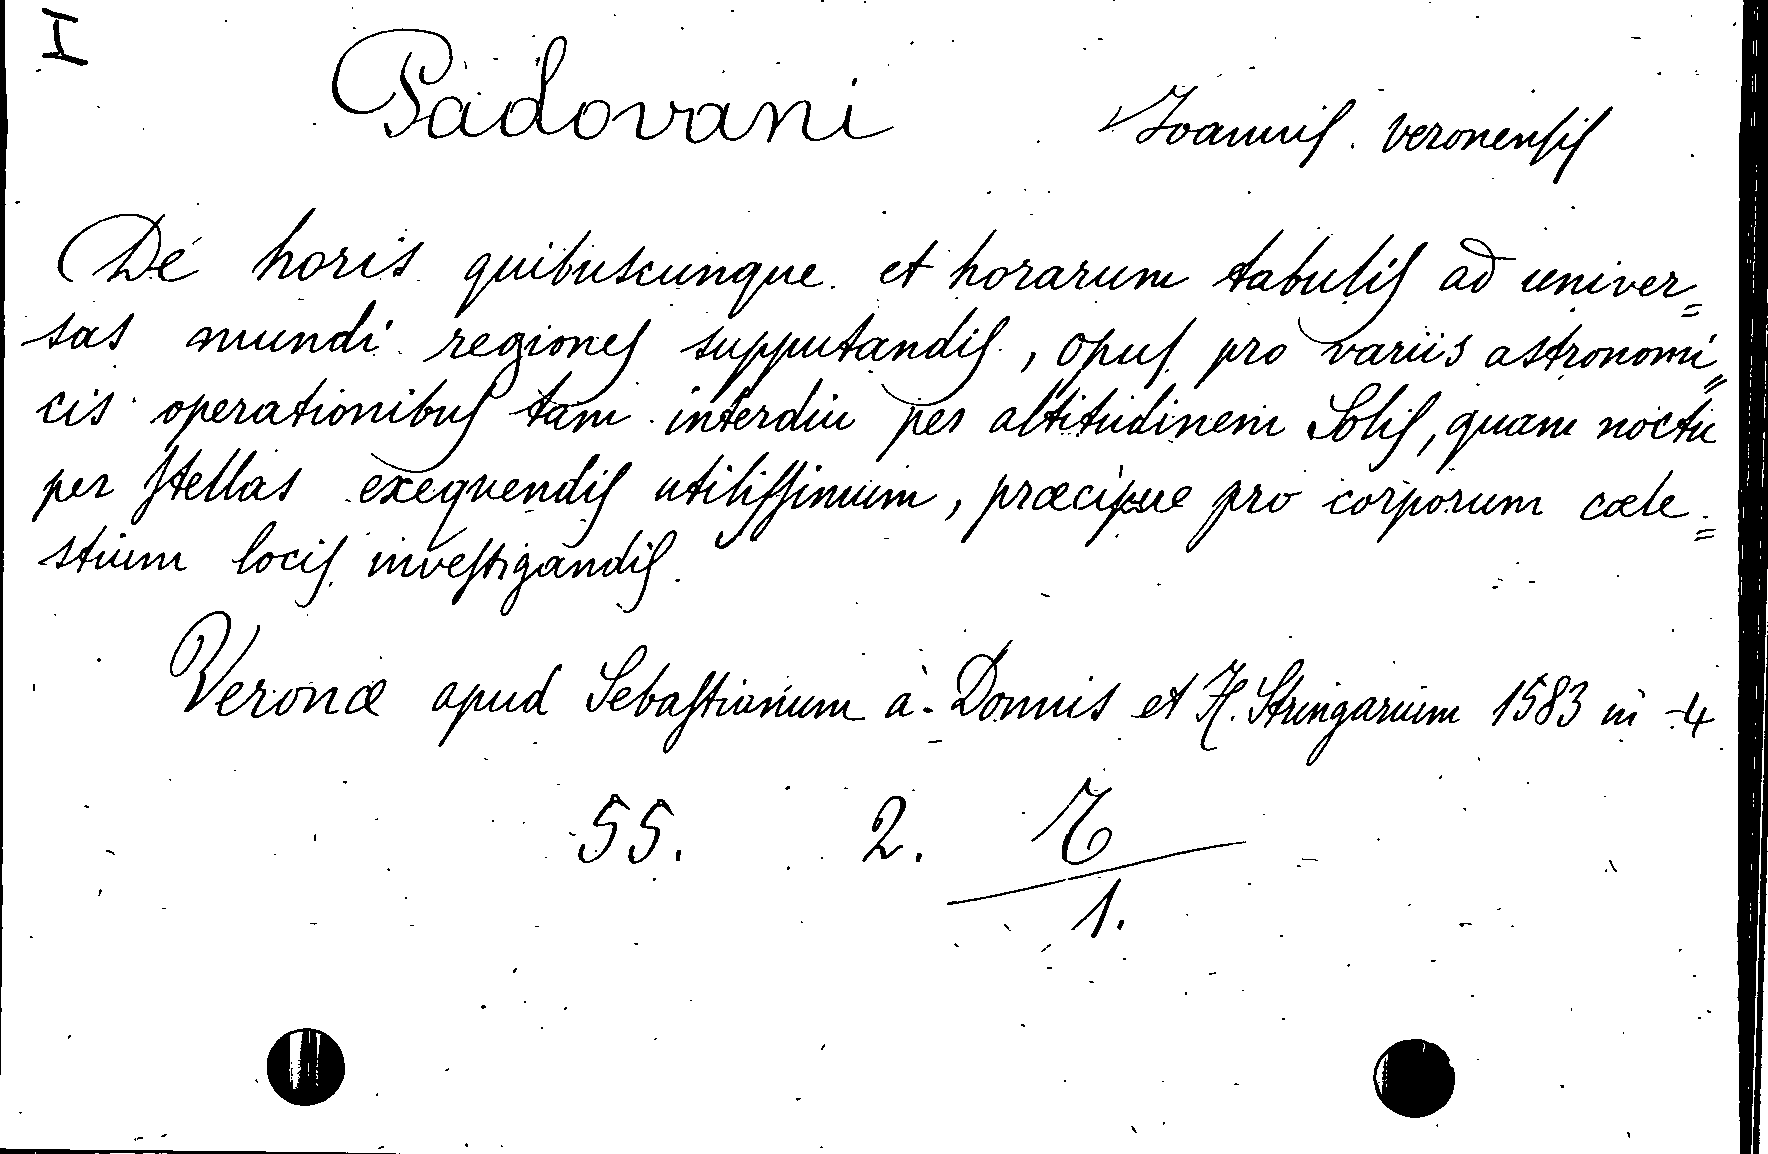 I
Padovani Joannis. veronensis
De horis quibuscunque et horarum tabulis ad univer=
sas mundi regiones supputandis, opus pro variis astronomi=
cis operationibus tam interdiu per altitudinem Solis, quam noctu
per stellas exequendis utilissimum, præcipue pro corporum cæle=
stium locis investigandis.
Veronæ apud Sebastianum à Donnis et H. Stringarium 1583 in -4
55. 2. 
1.